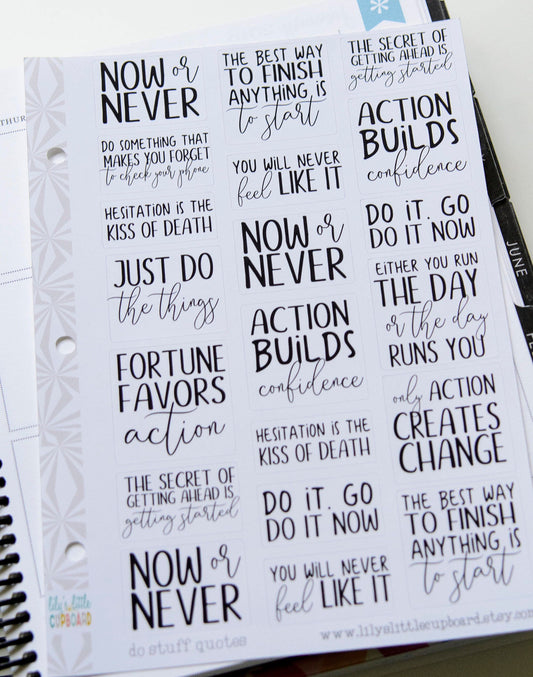 NOW or
NEVER
DO SOMETHING THAT
MAKES YOU FORGET
to check your phone
HESITATION IS THE
KISS OF DEATH
JUST DO
the things
FORTUNE
FAVORS
action
THE SECRET OF
GETTING AHEAD IS
getting started
NOW or
NEVER
THE BEST WAY
TO FINISH
ANYTHING, IS
to start
YOU WILL NEVER
feel LIKE IT
NOW or
NEVER
ACTION
BUiLDS
confidence
HESITATION IS THE
KISS OF DEATH
DO iT. GO
DO IT NOW
YOU WILL NEVER
feel LIKE IT
THE SECRET OF
GETTING AHEAD IS
getting started
ACTION
BUiLDS
confidence
DO iT. GO
DO IT NOW
EiTHER YOU RUN
THE DAY
or the day
RUNS YOU
only ACTION
CREATES
CHANGE
THE BEST WAY
TO FINISH
ANYTHING, IS
to start
lily's little
CUPBOARD
do stuff quotes
www.lilyslittlecupboard.etsy.com
THUR
JUNE